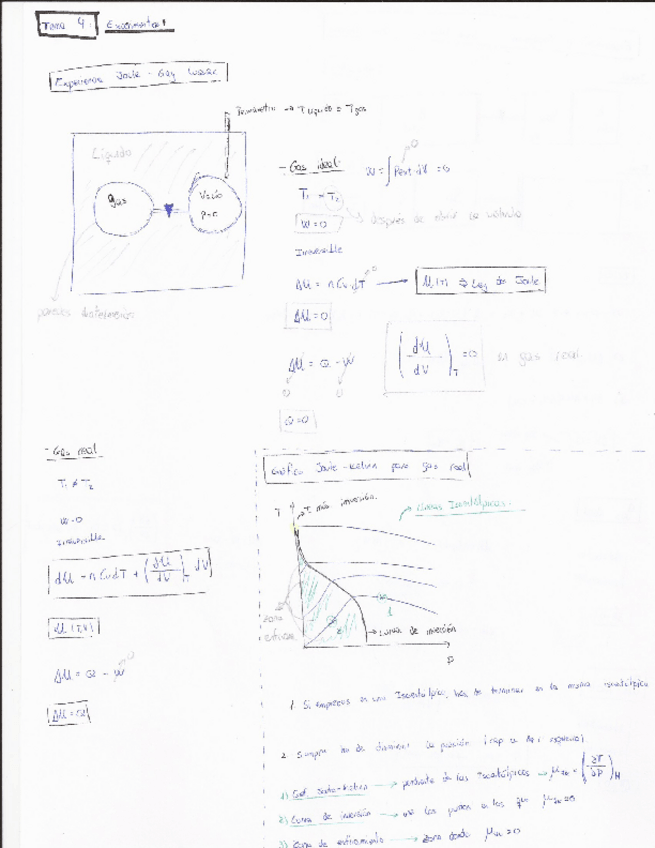 Tema 4: Experimental
Experiencia Joule - Gay Lussac
Termómetro → T líquido = T gas
Líquido
gas
Vacío
p=0
paredes diatérmanas
- Gas ideal
W = ∫ Pext dV = 0
0
T₁ = T₂
después de abrir la válvula
W=0
Irreversible
ΔU = nCvdT
0
U(T) ⇒ Ley de Joule
ΔU=0
ΔU = Q - W
0 0
(dU/dV)T = 0
gas ideal
Q=0
- Gas real
T₁ ≠ T₂
W=0
Irreversible
dU = nCvdT + (dU/dV)T dV
U(T,V)
ΔU = Q - W
0
ΔU=Q
Gráfica Joule-Kelvin para gas real
T
T máx inversión
Curvas Isentálpicas
zona
enfriam.
2
1
Curva de inversión
P
1. Si empiezas en una Isentálpica, has de terminar en la misma isentálpica
2. Siempre ha de disminuir la presión
1) Coef. Joule-Kelvin → pendiente de las Isentálpicas → μJK = (∂T/∂P)H
2) Curva de inversión → une los puntos en los que μJK=0
3) Zona de enfriamiento → zona donde